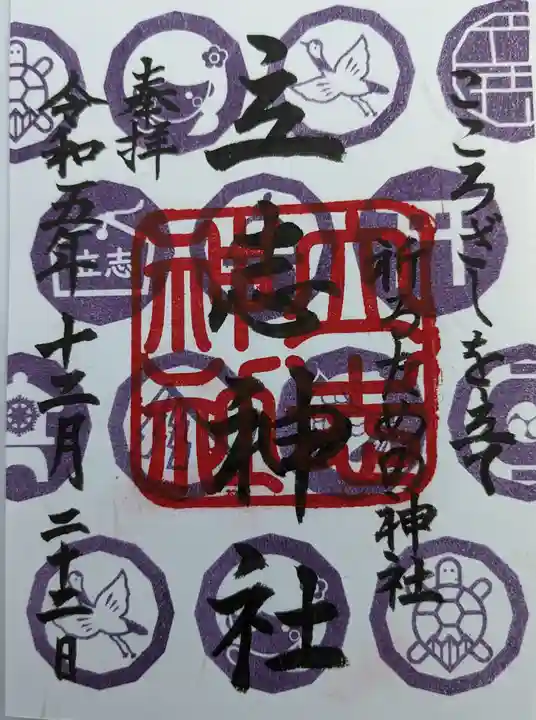 こころざしを立て
祈るための神社
立志神社
奉拝
令和五年十二月二十二日
立志神社
立志